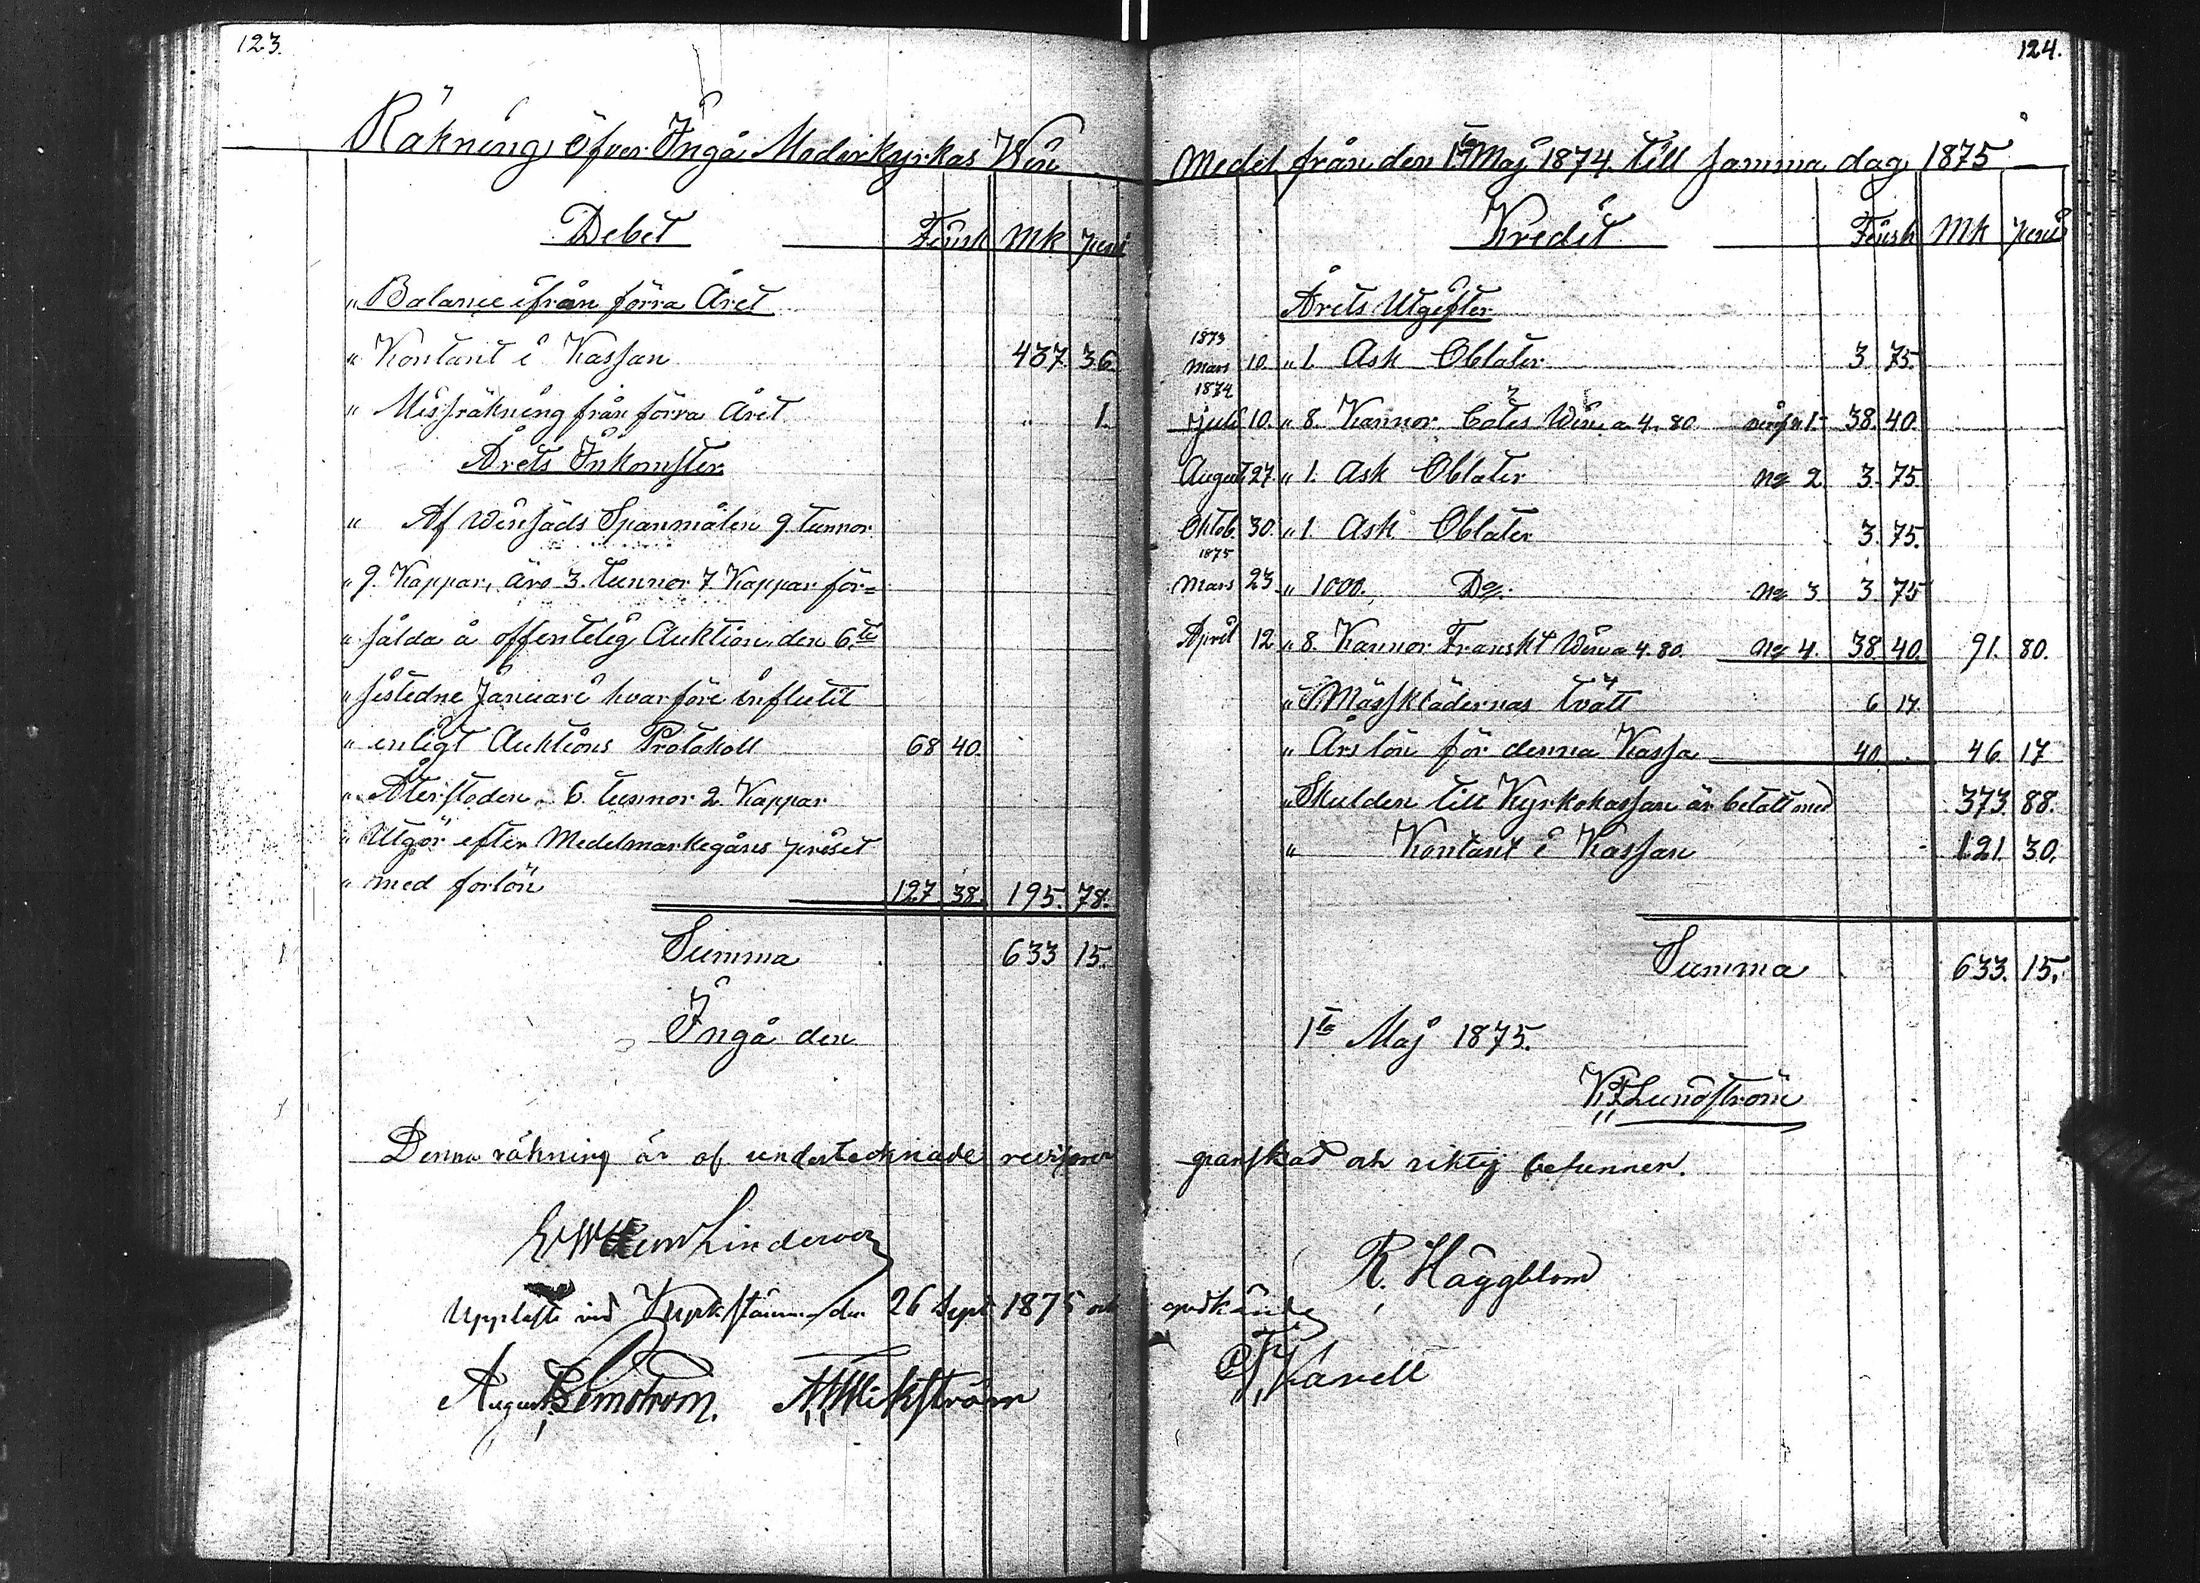 123.
Räkning öfver Ingå Moderkyrkas Win
Debet Finsk Mk peni
" Balance ifrån förra Året
" Kontant i Kassan 437. 36.
" Missräkning från förra Året " 1.
Årets Inkomster
" Af Winsäds Spanmålen 9 tunnor
" 9. Kappar, äro 3. tunnor 7 Kappar för=
" sålda å offentelig Auktion den 6te
" sistedne Januari hvarföre influtit
" enligt Auktions Protokoll 68 40.
" Återstoden 6. tunnor 2. Kappar
" Utgör efter Medelmarkegångs priset
" med forlön 127 38. 195. 78.
Summa 633 15.
Ingå den
Denna räkning är af undertecknade revisorer
Lindervez
Uppläst vid Kyrkstämma den 26 Sept 1875 och
August Lemström. Wikström
124.
Medel från den 1ta Maj 1874. till samma dag 1875
Kredit Finsk Mk peni
Årets Utgifter
1873
Mars 10. " 1. Ask Oblater 3. 75.
1874
Juli 10. " 8. Kannor Cates Win a 4. 80 1 38. 40.
August 27. " 1. Ask Oblater No 2. 3. 75.
Oktob. 30. " 1. Ask Oblater 3. 75.
1875
Mars 23. " 1000. Do. No 3. 3. 75
April 12 " 8. Kannor Franskt Win a 4. 80. No 4. 38. 40. 91. 80.
" Mässklädernas tvätt 6 17.
" Årslön för denna Kassa 40. . 46. 17
" Skulden till Kyrkokassan är betalt med 373. 88.
" Kontant i Kassan 121. 30.
Summa 633. 15.
1ta Maj 1875.
Lundström
granskad och riktig befunnen.
R. Häggblom
godkändes
Kavell